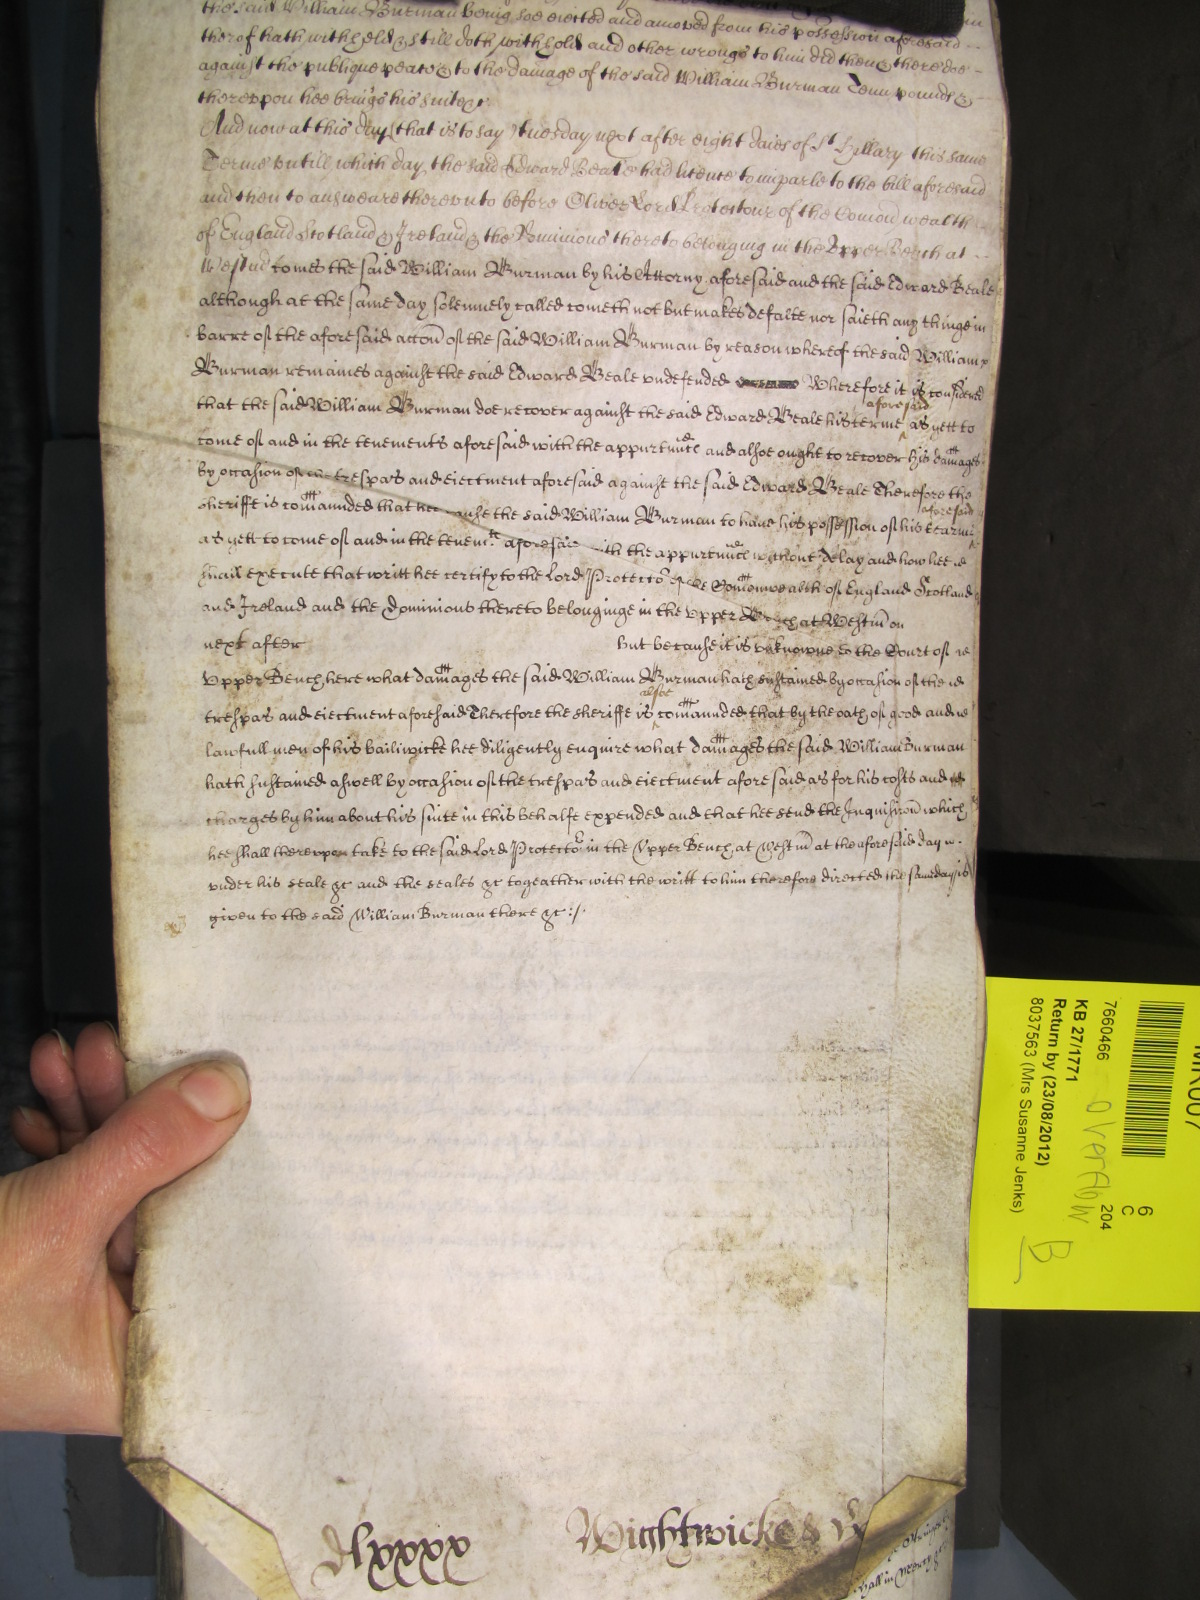 the said William Burman being soe eiected and amoved from his possession aforesaid
therof hath withheld & still doth withhold and other wrongs to him did then & there doe
against the publique peace & to the damage of the said William Burman Tenn pounds &
thereupon hee brings his suite &c
And now at this day (that is to say) tuesday next after eight daies of St Hillary this same
Terme untill which day the said Edward Beale had licence to imparle to the bill aforesaid
and then to answeare thereunto before Oliver Lord Protectour of the Comon wealth
of England Scotland & Ireland & the Dominions thereto belonging in the Upper Bench at
Westm comes the said William Burman by his Attorny aforesaid and the said Edward Beale
although at the same day solemnely called cometh not but makes defalte nor saieth any thinge in
barre of the aforesaid accon of the said William Burman by reason whereof the said William
Burman remaines against the said Edward Beale undefended Wherefore it is considered
that the said William Burman doe recover against the said Edward Beale his terme aforesaid as yett to
come of and in the tenements aforesaid with the appurtnncs and alsoe ought to recover his damages
by occasion of the trespas and eiectment aforesaid against the said Edward Beale Therefore the
sheriffe is comannded that hee cause the said William Burman to have his possession of his tearme aforesaid
as yett to come of and in the tenemts aforesaid with the appurtnncs without delay and how hee
shall execute that writt hee certify to the Lord Protector of the Comonwealth of England Scotland
and Ireland and the Dominions thereto belonginge in the Upper Bench at Westm on
next after but because it is unknowne to the Court of
Upper Bench here what damages the said William Burman hath sustained by occasion of the
trespas and eiectment aforesaid Therefore the sheriffe is alsoe comannded that by the oath of good and
lawfull men of his bailiwicke hee diligently enquire what damages the said William Burman
hath sustained aswell by occasion of the trespas and eiectment aforesaid as for his costs and
charges by him about his suite in this behalfe expended and that hee send the Inquisicon which
hee shall thereupon take to the said Lord Protector in the Upper Bench at Westm at the aforesaid day
under his seale &c and the seales &c togeather with the writt to him therefore directed the same day is
given to the said William Burman there &c :/
Dlxxxx Wightwicke &
MR007
7660466
KB 27/1771
Return by (23/08/2012)
8037563 (Mrs Susanne Jenks)
6
C
204
Overflow
B